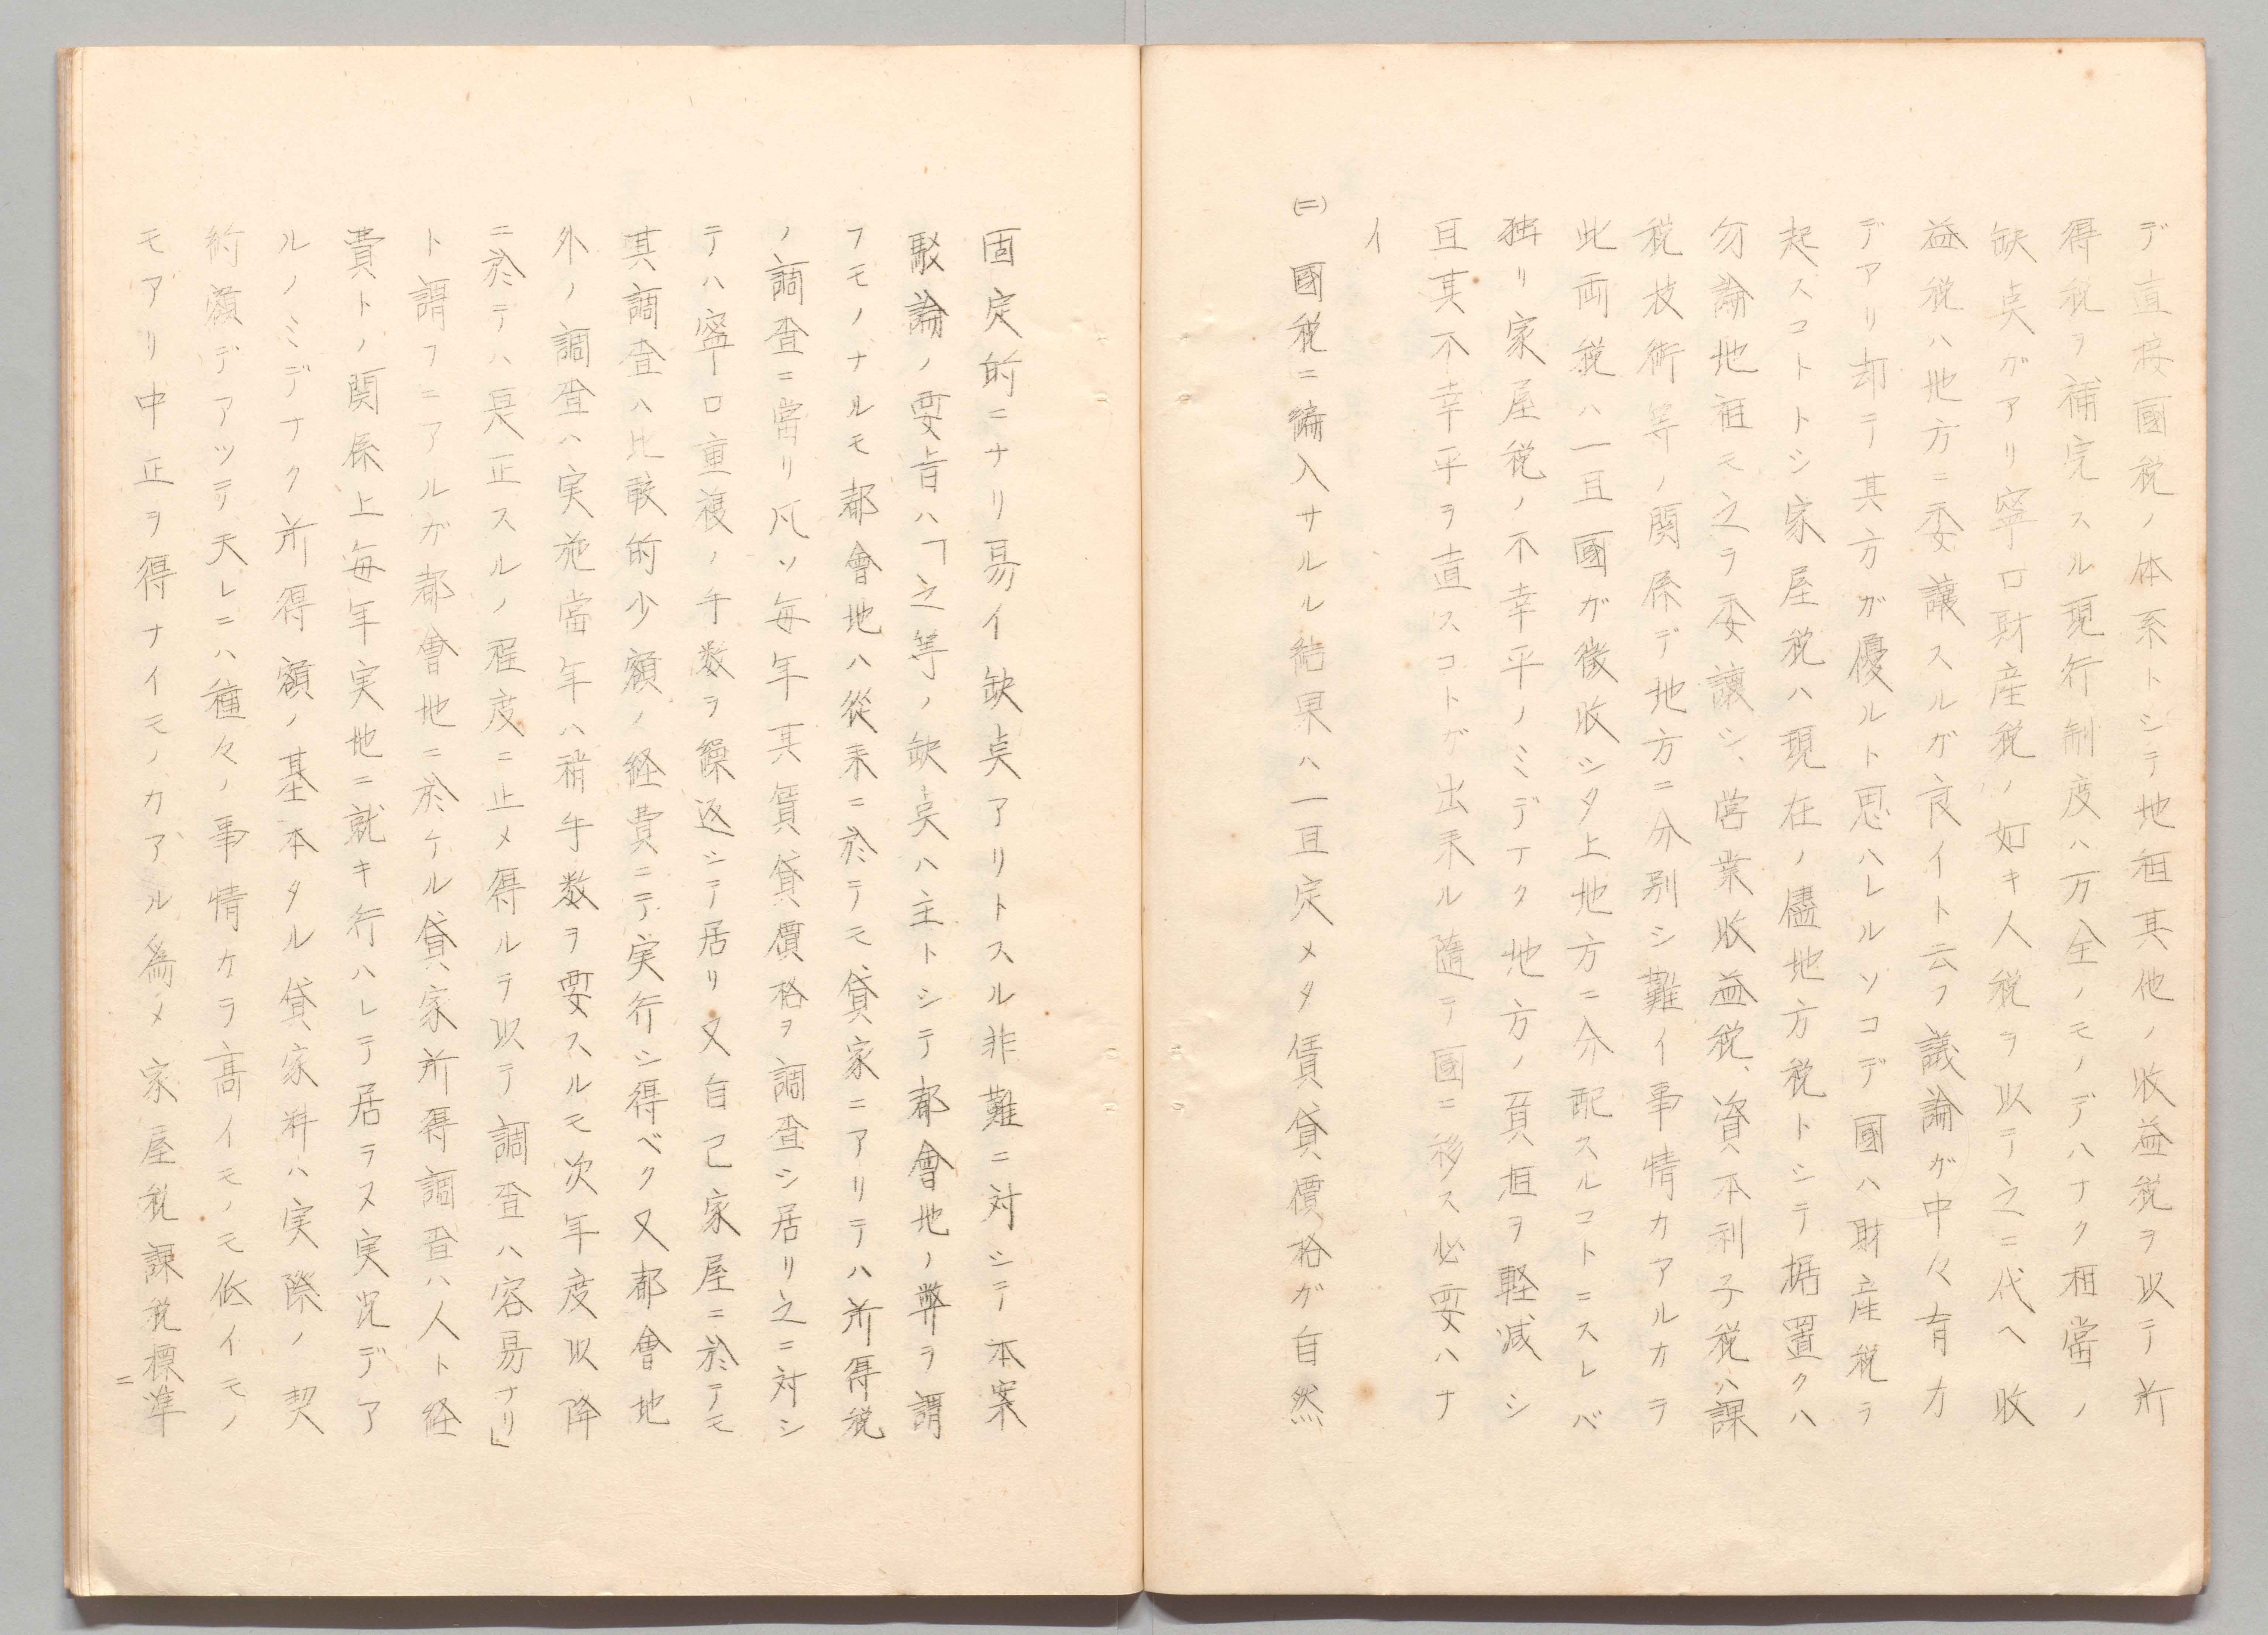 デ直接國税ノ体系トシテ地租其他ノ收益税ヲ以テ所
得税ヲ補完スル現行制度ハ万全ノモノデハナク相當ノ
缺点ガアリ寧ロ財産税ノ如キ人税ヲ以テ之ニ代ヘ收
益税ハ地方ニ委讓スルガ良イト云フ議論ガ中々有力
デアリ却テ其方ガ優ルト思ハレルソコデ國ハ財産税ヲ
起スコトトシ家屋税ハ現在ノ儘地方税トシテ据置クハ
勿論地祖モ之ヲ委讓シ、営業收益税、資本利子税ハ課
税技術等ノ関係デ地方ニ分別シ難イ事情カアルカラ
此両税ハ一旦國ガ徴收シタ上地方ニ分配スルコトニスレバ
独リ家屋税ノ不幸平ノミデナク地方ノ負担ヲ軽減シ
且其不幸平ヲ直スコトガ出来ル隨テ國ニ移ス必要ハナ
イ
(二)國税ニ編入サルル結果ハ一旦定メタ賃貸價格ガ自然
固定的ニナリ易イ缺点アリトスル非難ニ対シテ本案
駁論ノ要旨ハ「之等ノ缺点ハ主トシテ都會地ノ弊ヲ謂
フモノナルモ都會地ハ從来ニ於テモ貸家ニアリテハ所得税
ノ調査ニ當リ凡ソ毎年其賃貸價格ヲ調査シ居リ之ニ対シ
テハ寧ロ重複ノ手数ヲ繰返シテ居リ又自己家屋ニ於テモ
其調査ハ比較的少額ノ経費ニテ実行シ得ベク又都會地
外ノ調査ハ実施當年ハ稍手数ヲ要スルモ次年度以降
ニ於テハ是正スルノ程度ニ止メ得ルヲ以テ調査ハ容易ナリ」
ト謂フニアルガ都會地ニ於ケル貸家所得調査ハ人ト経
費トノ関係上毎年実地ニ就キ行ハレテ居ラヌ実況デア
ルノミデナク所得額ノ基本タル貸家料ハ実際ノ契
約額デアツテ夫レニハ種々ノ事情カラ高イモノモ低イモノ
モアリ中正ヲ得ナイモノカアル為メ家屋税課税標準ニ